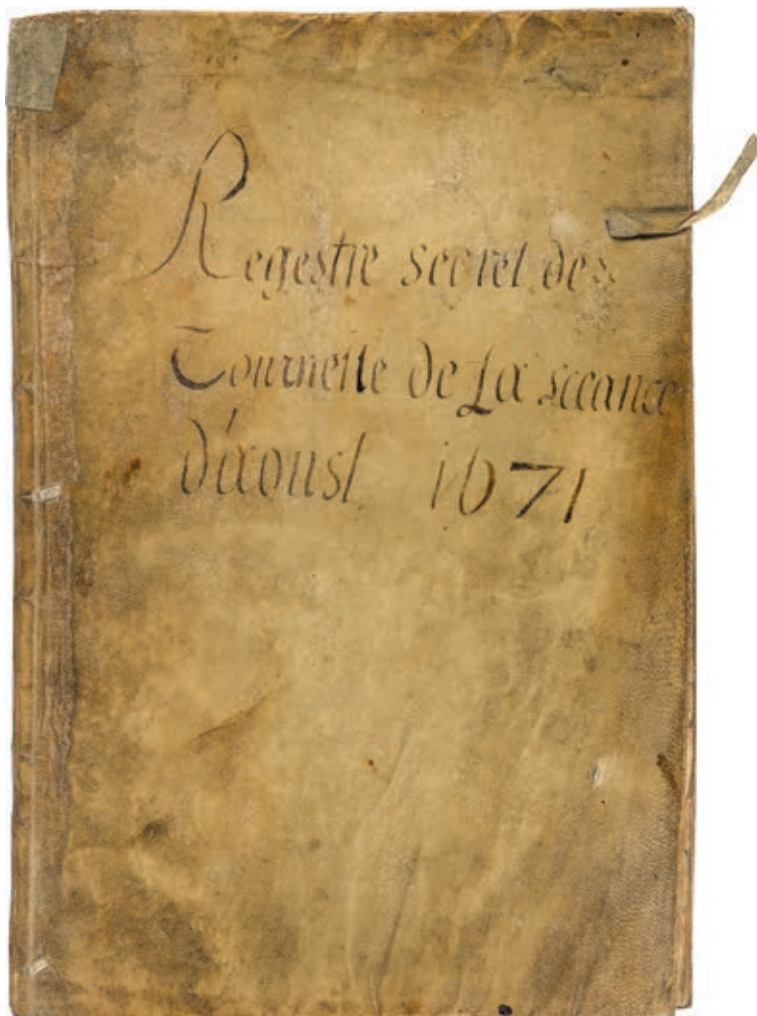 Regestre secret de
Tournelle de La seeance
d'aoust 1671